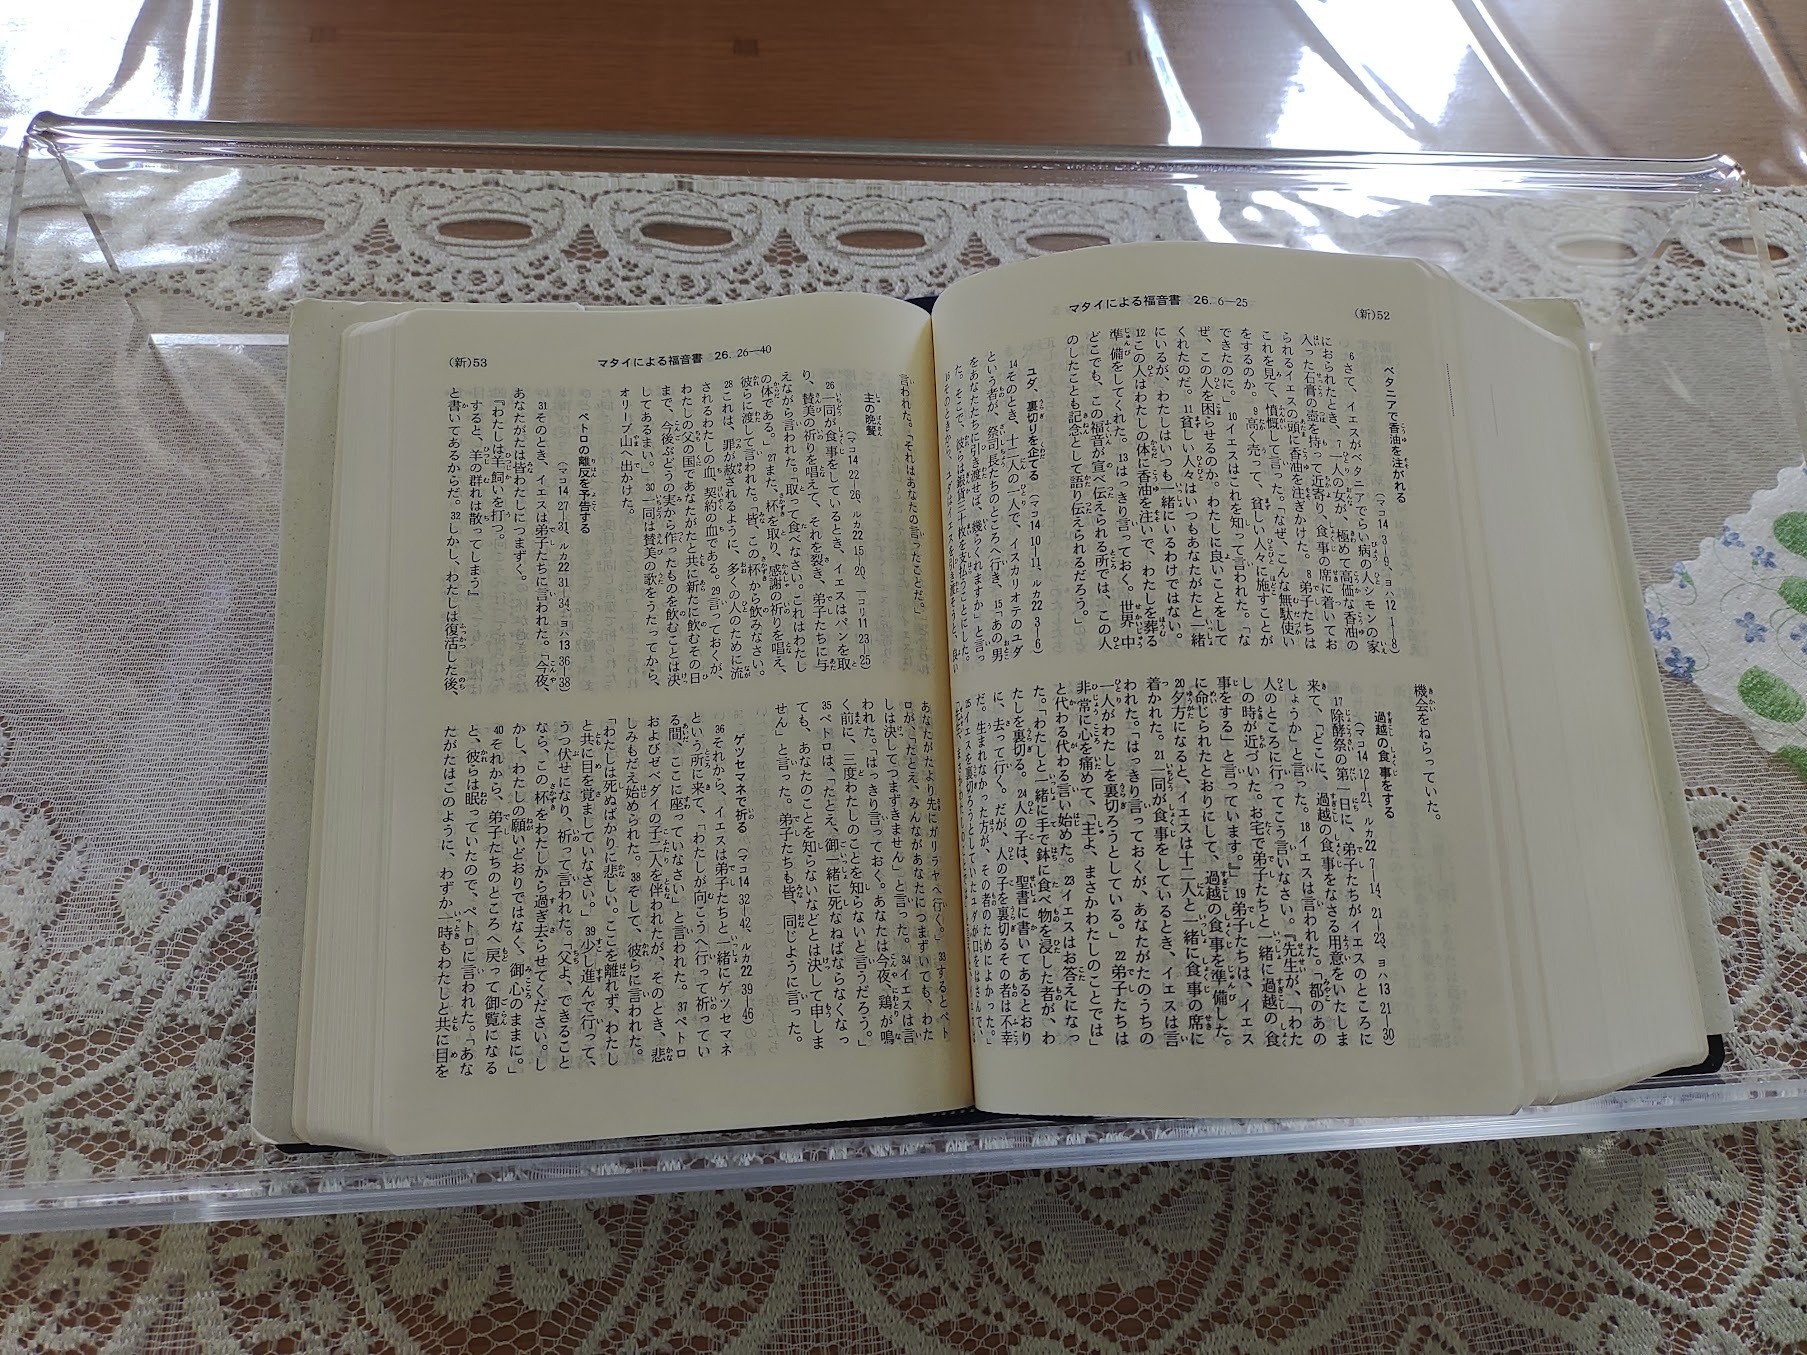 (新)52
マタイによる福音書 26. 6—25
ベタニアで香油を注がれる
(マコ14 3—9、ヨハ12 1—8)
6さて、イエスがベタニアでらい病の人シモンの家
におられたとき、7一人の女が、極めて高価な香油の
入った石膏の壺を持って近寄り、食事の席に着いてお
られるイエスの頭に香油を注ぎかけた。8弟子たちは
これを見て、憤慨して言った。「なぜ、こんな無駄使い
をするのか。9高く売って、貧しい人々に施すことが
できたのに。」10イエスはこれを知って言われた。「な
ぜ、この人を困らせるのか。わたしに良いことをして
くれたのだ。11貧しい人々はいつもあなたがたと一緒
にいるが、わたしはいつも一緒にいるわけではない。
12この人はわたしの体に香油を注いで、わたしを葬る
準備をしてくれた。13はっきり言っておく。世界中
どこでも、この福音が宣べ伝えられる所では、この人
のしたことも記念として語り伝えられるだろう。」
ユダ、裏切りを企てる (マコ14 10—11、ルカ22 3—6)
14そのとき、十二人の一人で、イスカリオテのユダ
という者が、祭司長たちのところへ行き、15「あの男
をあなたたちに引き渡せば、幾らくれますか」と言っ
た。そこで、彼らは銀貨三十枚を支払うことにした。
16そのときから、ユダはイエスを引き渡そうと、良い
機会をねらっていた。
過越の食事をする
(マコ14 12—21、ルカ22 7—14、21—23、ヨハ13 21—30)
17除酵祭の第一日に、弟子たちがイエスのところに
来て、「どこに、過越の食事をなさる用意をいたしま
しょうか」と言った。18イエスは言われた。「都のあの
人のところに行ってこう言いなさい。『先生が、「わた
しの時が近づいた。お宅で弟子たちと一緒に過越の食
事をする」と言っています。』」19弟子たちは、イエス
に命じられたとおりにして、過越の食事を準備した。
20夕方になると、イエスは十二人と一緒に食事の席に
着かれた。21一同が食事をしているとき、イエスは言
われた。「はっきり言っておくが、あなたがたのうちの
一人がわたしを裏切ろうとしている。」22弟子たちは
非常に心を痛めて、「主よ、まさかわたしのことでは」
と代わる代わる言い始めた。23イエスはお答えになっ
た。「わたしと一緒に手で鉢に食べ物を浸した者が、わ
たしを裏切る。24人の子は、聖書に書いてあるとおり
に、去って行く。だが、人の子を裏切るその者は不幸
だ。生まれなかった方が、その者のためによかった。」
25イエスを裏切ろうとしていたユダが口をはさんで、
(新)53
マタイによる福音書 26. 26—40
言われた。「それはあなたの言ったことだ。」
主の晩餐
(マコ14 22—26、ルカ22 15—20、一コリ11 23—25)
26一同が食事をしているとき、イエスはパンを取
り、賛美の祈りを唱えて、それを裂き、弟子たちに与
えながら言われた。「取って食べなさい。これはわたし
の体である。」27また、杯を取り、感謝の祈りを唱え、
彼らに渡して言われた。「皆、この杯から飲みなさい。
28これは、罪が赦されるように、多くの人のために流
されるわたしの血、契約の血である。29言っておくが、
わたしの父の国であなたがたと共に新たに飲むその日
まで、今後ぶどうの実から作ったものを飲むことは決
してあるまい。」30一同は賛美の歌をうたってから、
オリーブ山へ出かけた。
ペトロの離反を予告する
(マコ14 27—31、ルカ22 31—34、ヨハ13 36—38)
31そのとき、イエスは弟子たちに言われた。「今夜、
あなたがたは皆わたしにつまずく。
『わたしは羊飼いを打つ。
すると、羊の群れは散ってしまう』
と書いてあるからだ。32しかし、わたしは復活した後、
あなたがたより先にガリラヤへ行く。」33するとペト
ロが、「たとえ、みんながあなたにつまずいても、わた
しは決してつまずきません」と言った。34イエスは言
われた。「はっきり言っておく。あなたは今夜、鶏が鳴
く前に、三度わたしのことを知らないと言うだろう。」
35ペトロは、「たとえ、御一緒に死なねばならなくなっ
ても、あなたのことを知らないなどとは決して申しま
せん」と言った。弟子たちも皆、同じように言った。
ゲツセマネで祈る (マコ14 32—42、ルカ22 39—46)
36それから、イエスは弟子たちと一緒にゲツセマネ
という所に来て、「わたしが向こうへ行って祈ってい
る間、ここに座っていなさい」と言われた。37ペトロ
およびゼベダイの子二人を伴われたが、そのとき、悲
しみもだえ始められた。38そして、彼らに言われた。
「わたしは死ぬばかりに悲しい。ここを離れず、わたし
と共に目を覚ましていなさい。」39少し進んで行って、
うつ伏せになり、祈って言われた。「父よ、できること
なら、この杯をわたしから過ぎ去らせてください。し
かし、わたしの願いどおりではなく、御心のままに。」
40それから、弟子たちのところへ戻って御覧になる
と、彼らは眠っていたので、ペトロに言われた。「あな
たがたはこのように、わずか一時もわたしと共に目を